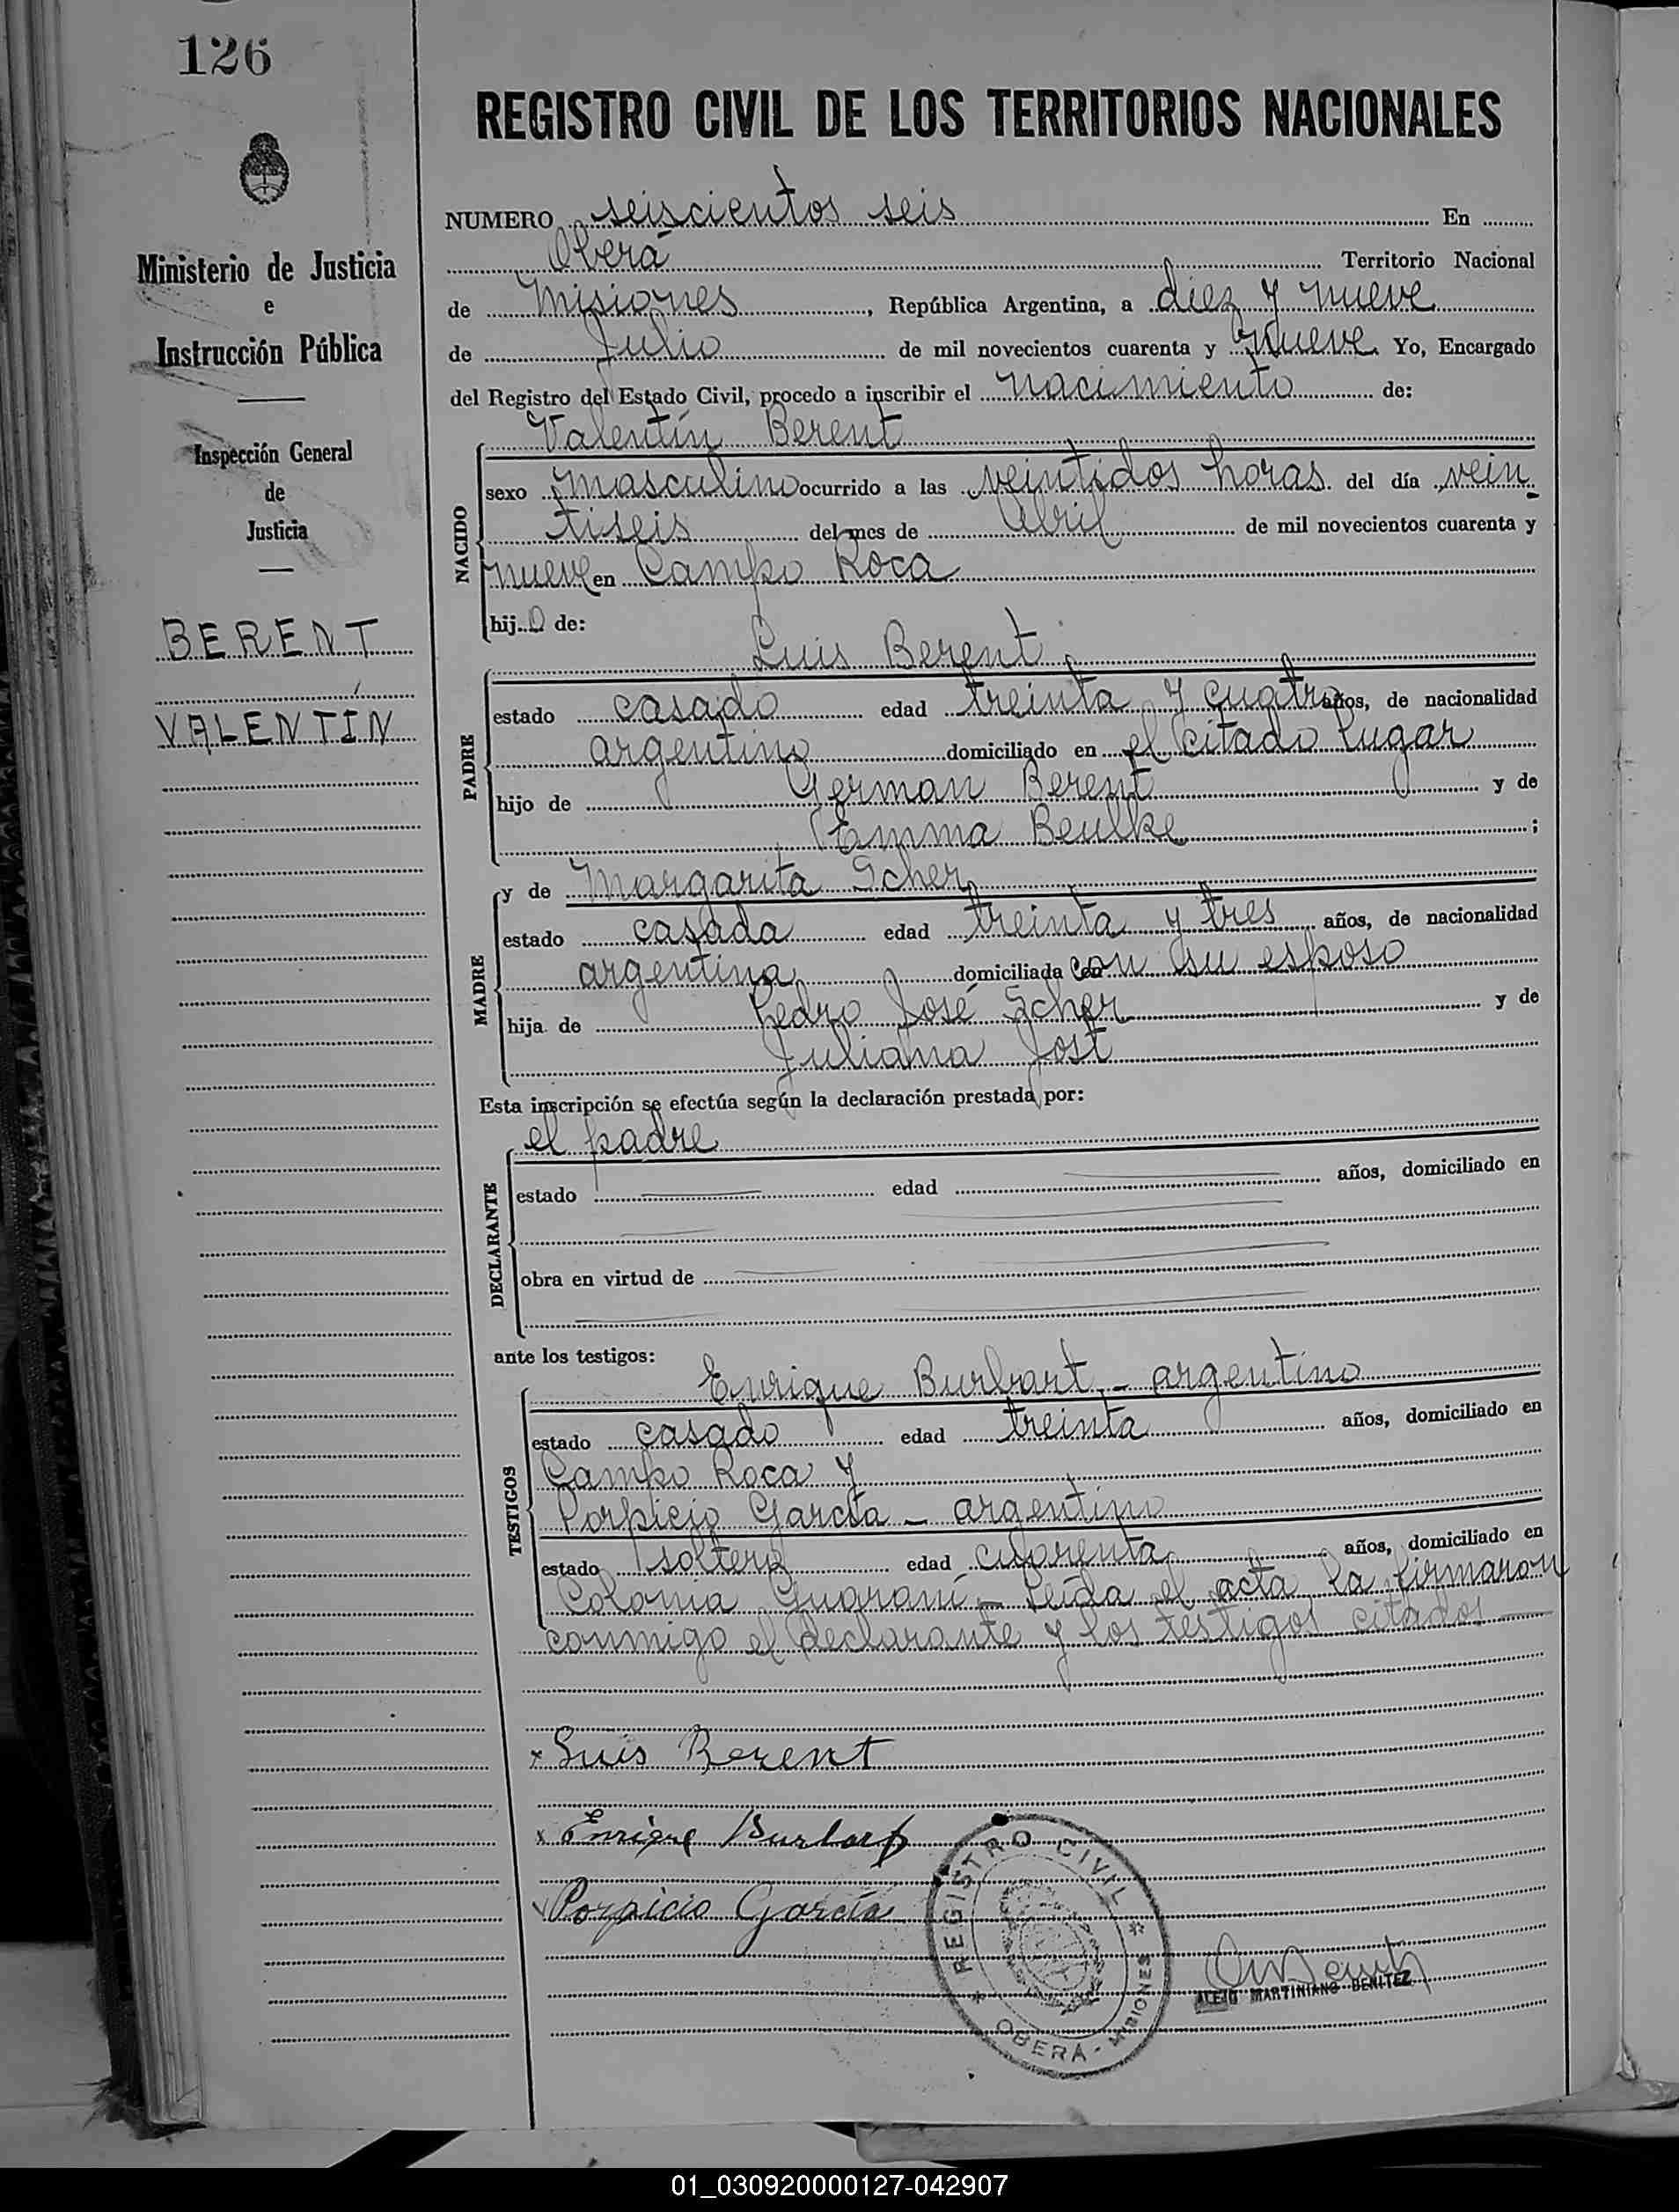 126
Ministerio de Justicia
e
Instrucción Pública
Inspección General
de
Justicia
BERENT
VALENTÍN
REGISTRO CIVIL DE LOS TERRITORIOS NACIONALES
NUMERO seiscientos seis En
Oberá Territorio Nacional
de Misiones, República Argentina, a diez y nueve
de Julio de mil novecientos cuarenta y nueve. Yo, Encargado
del Registro del Estado Civil, procedo a inscribir el nacimiento de:
Valentín Berent
NACIDO
sexo masculino ocurrido a las veintidos horas del día vein
tiseis del mes de Abril de mil novecientos cuarenta y
nueve en Campo Roca
hijo de:
Luis Berent
PADRE
estado casado edad treinta y cuatro años, de nacionalidad
argentino domiciliado en el citado lugar
hijo de German Berent y de
Emma Beulke ;
y de Margarita Scher
MADRE
estado casada edad treinta y tres años, de nacionalidad
argentina domiciliada con su esposo
hija de Pedro José Scher y de
Juliana Jost
Esta inscripción se efectúa según la declaración prestada por:
el padre
DECLARANTE
estado edad años, domiciliado en
obra en virtud de
ante los testigos:
Enrique Burbart.- argentino
TESTIGOS
estado casado edad treinta años, domiciliado en
Campo Roca y
Porpicio García - argentino
estado soltero edad cuarenta años, domiciliado en
Colonia Guaraní - Leída el acta la firmaron
conmigo el declarante y los testigos citados
x Luis Berent
x
Porpicio García
REGISTRO CIVIL
OBERÁ - MISIONES
ALEJO MARTINIANO BENITEZ
01_030920000127-042907